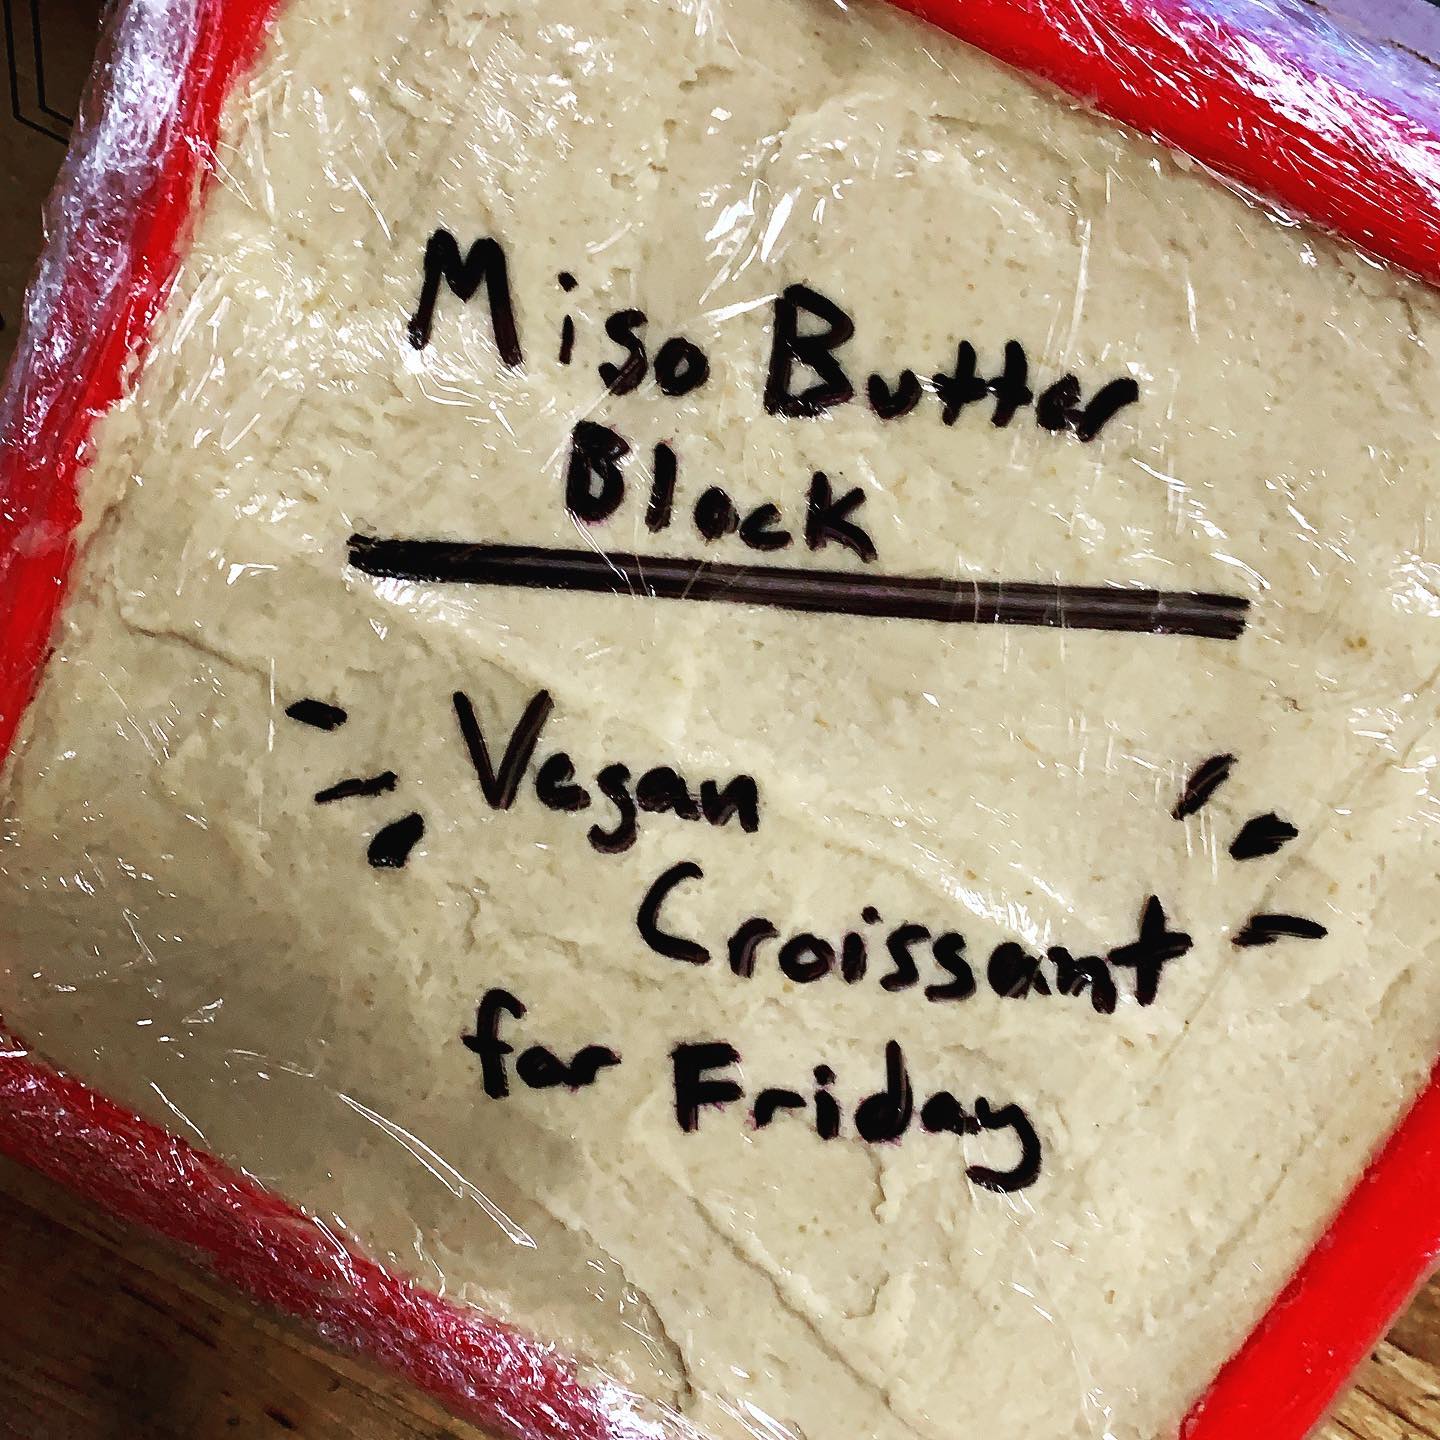 Miso Butter
Block
Vegan
Croissant
for Friday